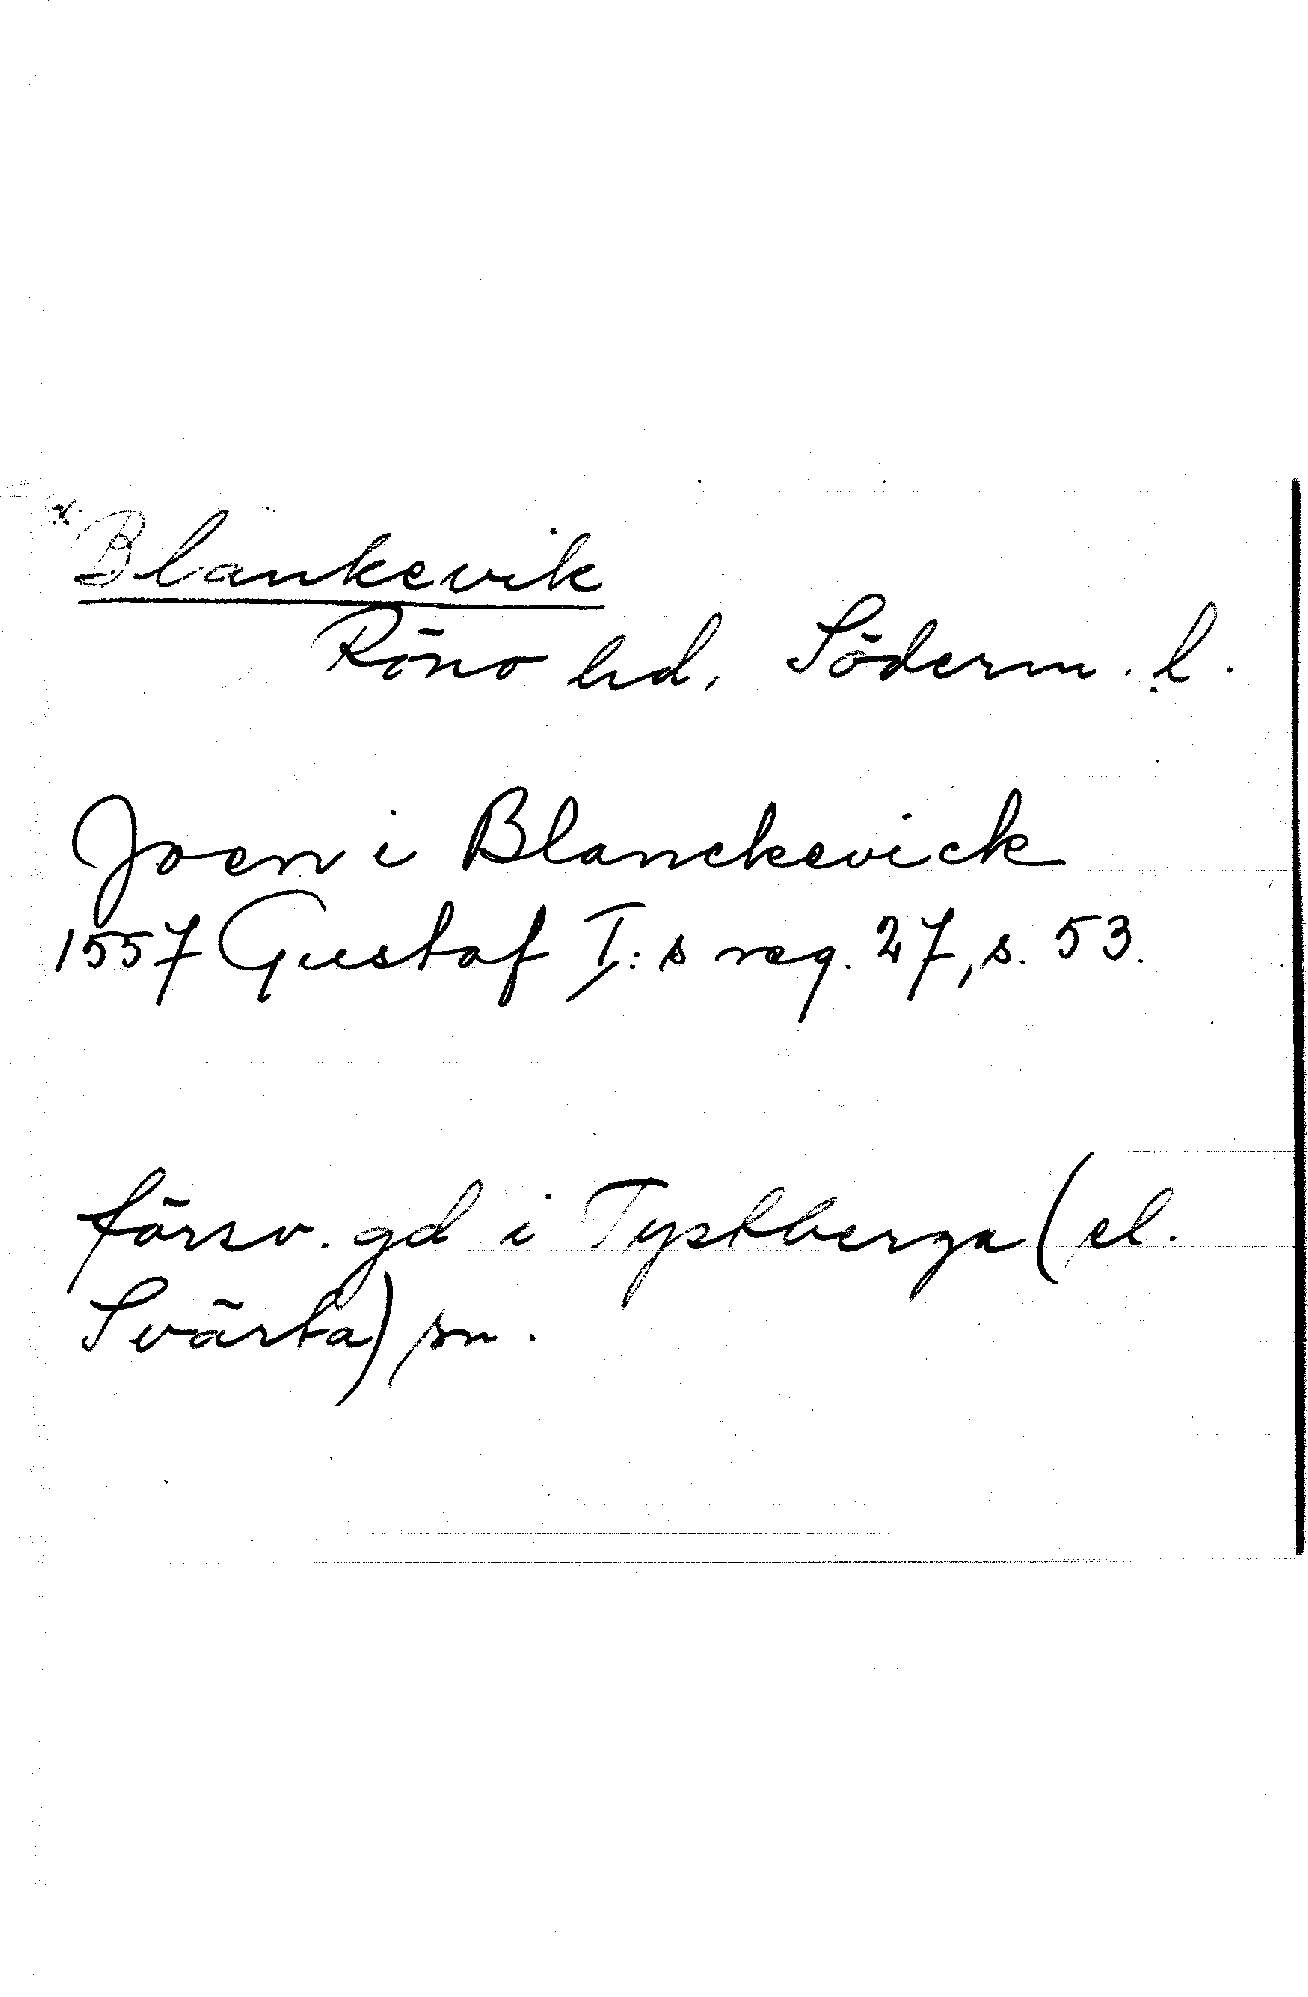 x Blankevik
Rönö hd, Söderm. l.
Joen i Blanckevick
1557 Gustaf I:s reg. 27, s. 53.
försv. gd i Tystberga (el.
Svärta) sn.